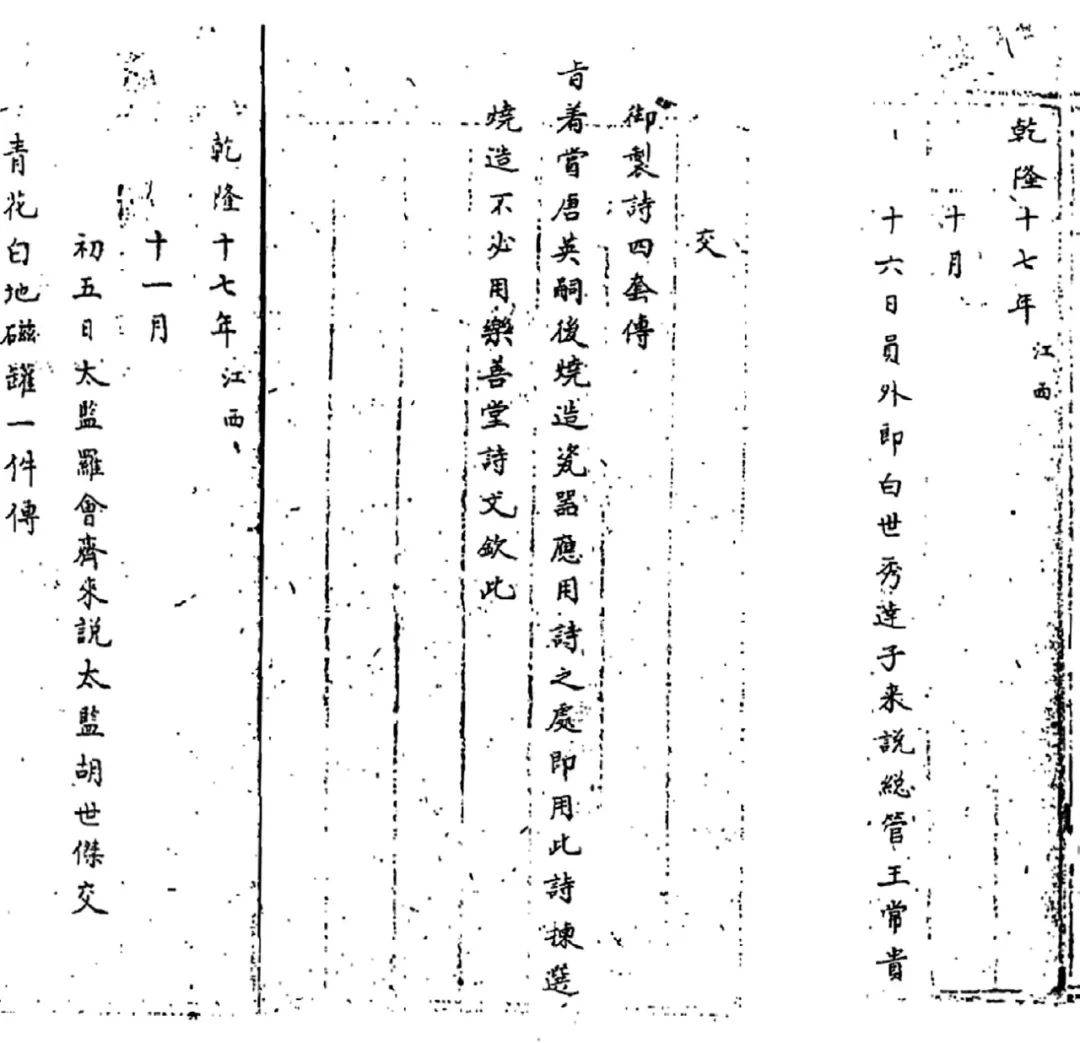 乾隆十七年 江西
十月
十六日員外郎白世秀達子來說總管王常貴
交
御製詩四套傳
旨着嘗唐英嗣後燒造瓷器應用詩之處即用此詩揀選
燒造不必用樂善堂詩文欽此
乾隆十七年 江西
十一月
初五日太監羅會齊來說太監胡世傑交
青花白地磁罐一件傳